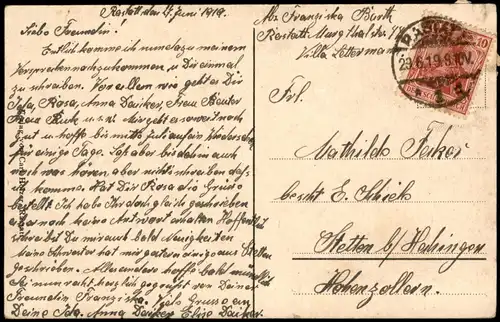 Rastatt den 27. Juni 1919.
Liebe Freundin!
Endlich komme ich nun dazu meinem
Versprechen nachzukommen, u Dir einmal
zu schreiben. Vor allem wie geht es Dir
Ida, Rosa, Anna Dauiker, Frau Beuter
Frau u.s.w. Mir geht es soweit noch
gut u hoffe bis mitte Juli auf ein Wiedersehen
für einige Tage. Laß aber bei dein auch
noch was hören, aber nicht schreiben daß ich
komme. Hat Dir Rosa die Grüße
bestellt. Ich habe Ihr dann gleich geschrieben
aber noch keine Antwort erhalten Hoffentlich
schreibst Du mir auch bald Neuigkeiten
Meine Schwester hat mir gestern einiges aus Stetten
geschrieben. Alles andere hoffe bald mündlich
Sei nun recht herzlich gegrüßt von Deiner
Freundin Franziska. Viele Grüsse an
Deine Ida, Anna Dauiker Elise Dauiker.
Abs. Franziska Barth
Rastatt Murgthalstr. 17
Villa Lettermann
RASTATT
29.6.19.8.10V.
10
Frl.
Mathilde
bescht E. Schick
Stetten b/ Hechingen
Hohenzollern.